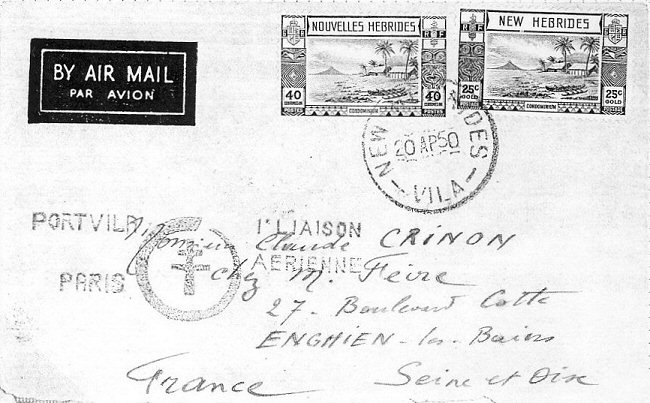 BY AIR MAIL
PAR AVION
NOUVELLES HEBRIDES
RF
40 CENTIMES OR 40
CONDOMINIUM
POSTES
NEW HEBRIDES
RF
25c GOLD 25c GOLD
CONDOMINIUM
NEW HEBRIDES
20 AP 50
VILA
PORTVILA
PARIS
1e LIAISON
AERIENNE
Monsieur Claude CRINON
chez M. Feire
27 - Boulevard Cotte
ENGHIEN-les-Bains
Seine et Oise
France